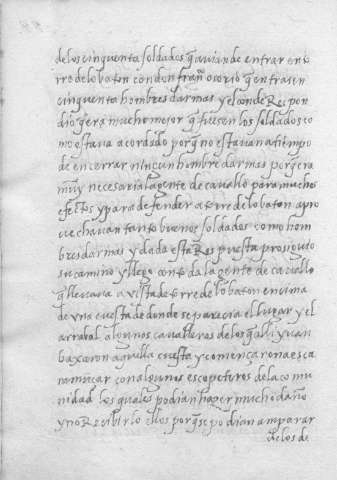 delos cinquenta soldados q̃ avian de entrar en to
rre de lobaton con don fran.co osorio q̃ entrasen
cinquenta hombres darmas y el conde Respon
dio q̃ era mucho mejor q̃ fuesen los soldados co
mo estava acordado porq̃ no estavan a tiempo
de encerrar ningun hombre darmas porq̃ era
muy necesaria la gente de cavallo para muchos
efectos y para defender a torre de lobaton apro
vechavan tanto buenos soldados como hom
bres darmas y dada esta Respuesta prosiguio
su camino y llego con toda la gente de cavallo
q̃ llevava a vista de torre de lobaton encima
de una cuesta de donde se parecia el lugar y el
arrabal algunos cavalleros de los q̃ alli yvan
baxaron aquella cuesta y començaron a esca
ramuçar con algunos escopeteros de la comu
nidad los quales podian hazer mucho daño
y no Recibirlo ellos porq̃ se podian amparar
de los de